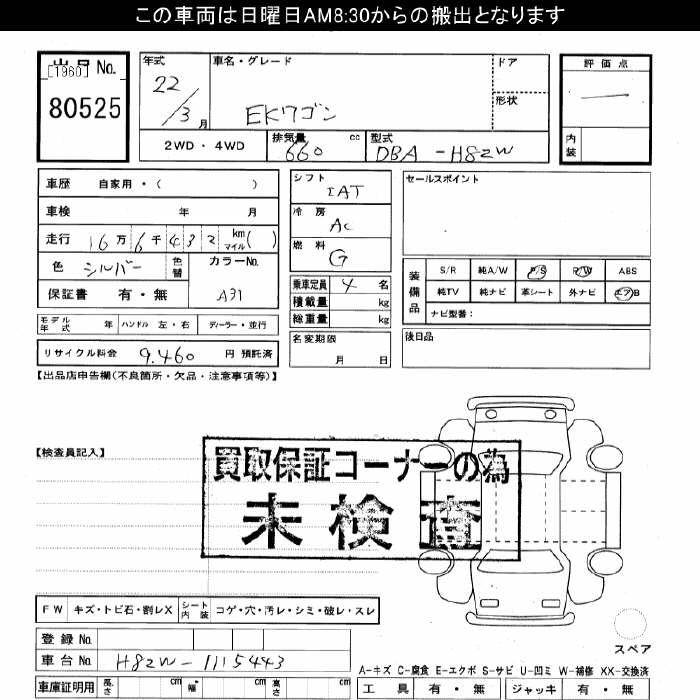 この車両は日曜日AM8:30からの搬出となります
出品 No.
[1960]
80525
年式
22/3 月
車名・グレード
EKワゴン
ドア
形状
評価点
—
内装
2WD・4WD
排気量 660 cc
型式 DBA-H82W
車歴 自家用・( )
車検 年 月
走行 16万6千432 km マイル ( )
色 シルバー 色替
カラーNo. A31
保証書 有・無
モデル年式 年 ハンドル 左・右 ディーラー・並行
リサイクル料金 9,460 円 預託済
シフト IAT
冷房 AC
燃料 G
乗車定員 4 名
積載量 kg
総重量 kg
名変期限 月 日
セールスポイント
装備品
S/R 純A/W P/S P/W ABS
純TV 純ナビ 革シート 外ナビ エアB
ナビ型番:
後日品
【出品店申告欄(不良箇所・欠品・注意事項等)】
【検査員記入】
買取保証コーナーの為
未検査
FW キズ・トビ石・割レX シート内装 コゲ・穴・汚レ・シミ・破レ・スレ
登録No.
車台No. H82W-1115443
車庫証明用 長さ cm 幅 cm 高さ cm
スペア
A-キズ C-腐食 E-エクボ S-サビ U-凹ミ W-補修 XX-交換済
工具 有・無 ジャッキ 有・無